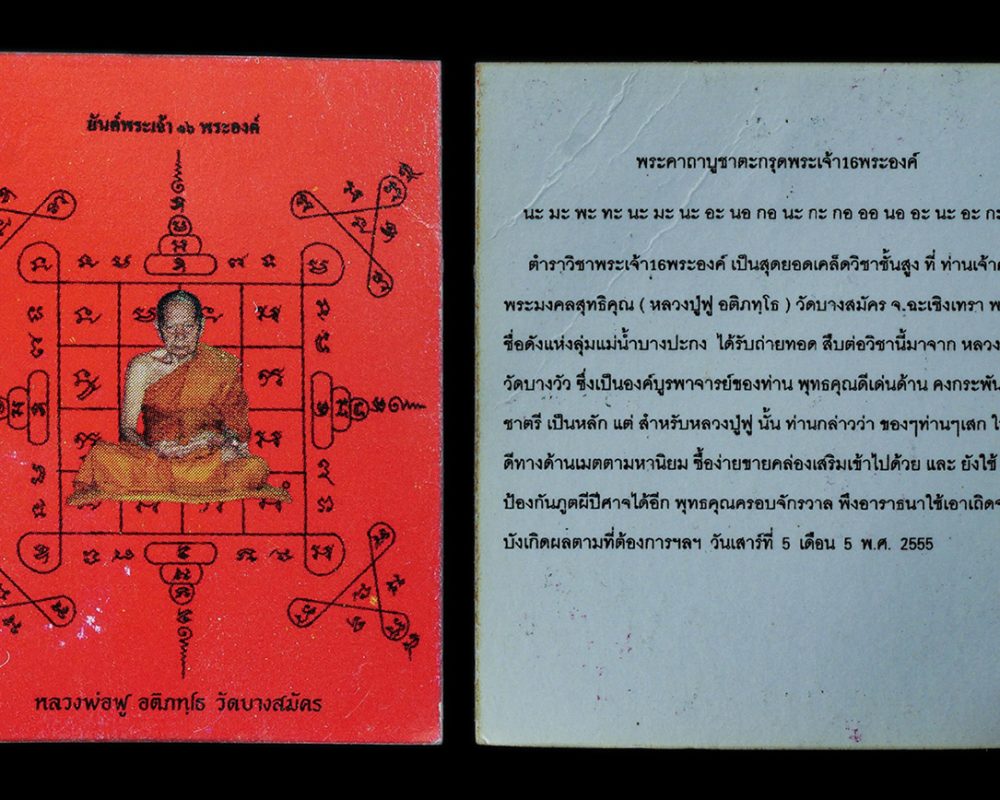 ยันต์พระเจ้า ๑๖ พระองค์
หลวงพ่อฟู อติภทฺโธ วัดบางสมัคร
พระคาถาบูชาตะกรุดพระเจ้า16พระองค์
นะ มะ พะ ทะ นะ มะ นะ อะ นอ กอ นะ กะ กอ ออ นอ อะ นะ อะ กะ
ตำราวิชาพระเจ้า16พระองค์ เป็นสุดยอดเคล็ดวิชาชั้นสูง ที่ ท่านเจ้า
พระมงคลสุทธิคุณ ( หลวงปู่ฟู อติภทฺโธ ) วัดบางสมัคร จ.ฉะเชิงเทรา
ชื่อดังแห่งลุ่มแม่น้ำบางปะกง ได้รับถ่ายทอด สืบต่อวิชานี้มาจาก หลวง
วัดบางวัว ซึ่งเป็นองค์บูรพาจารย์ของท่าน พุทธคุณดีเด่นด้าน คงกระพัน
ชาตรี เป็นหลัก แต่ สำหรับหลวงปู่ฟู นั้น ท่านกล่าวว่า ของๆท่านๆเสก
ดีทางด้านเมตตามหานิยม ซื้อง่ายขายคล่องเสริมเข้าไปด้วย และ ยังใช้
ป้องกันภูตผีปีศาจได้อีก พุทธคุณครอบจักรวาล พึงอาราธนาใช้เอาเถิด
บังเกิดผลตามที่ต้องการฯลฯ วันเสาร์ที่ 5 เดือน 5 พ.ศ. 2555